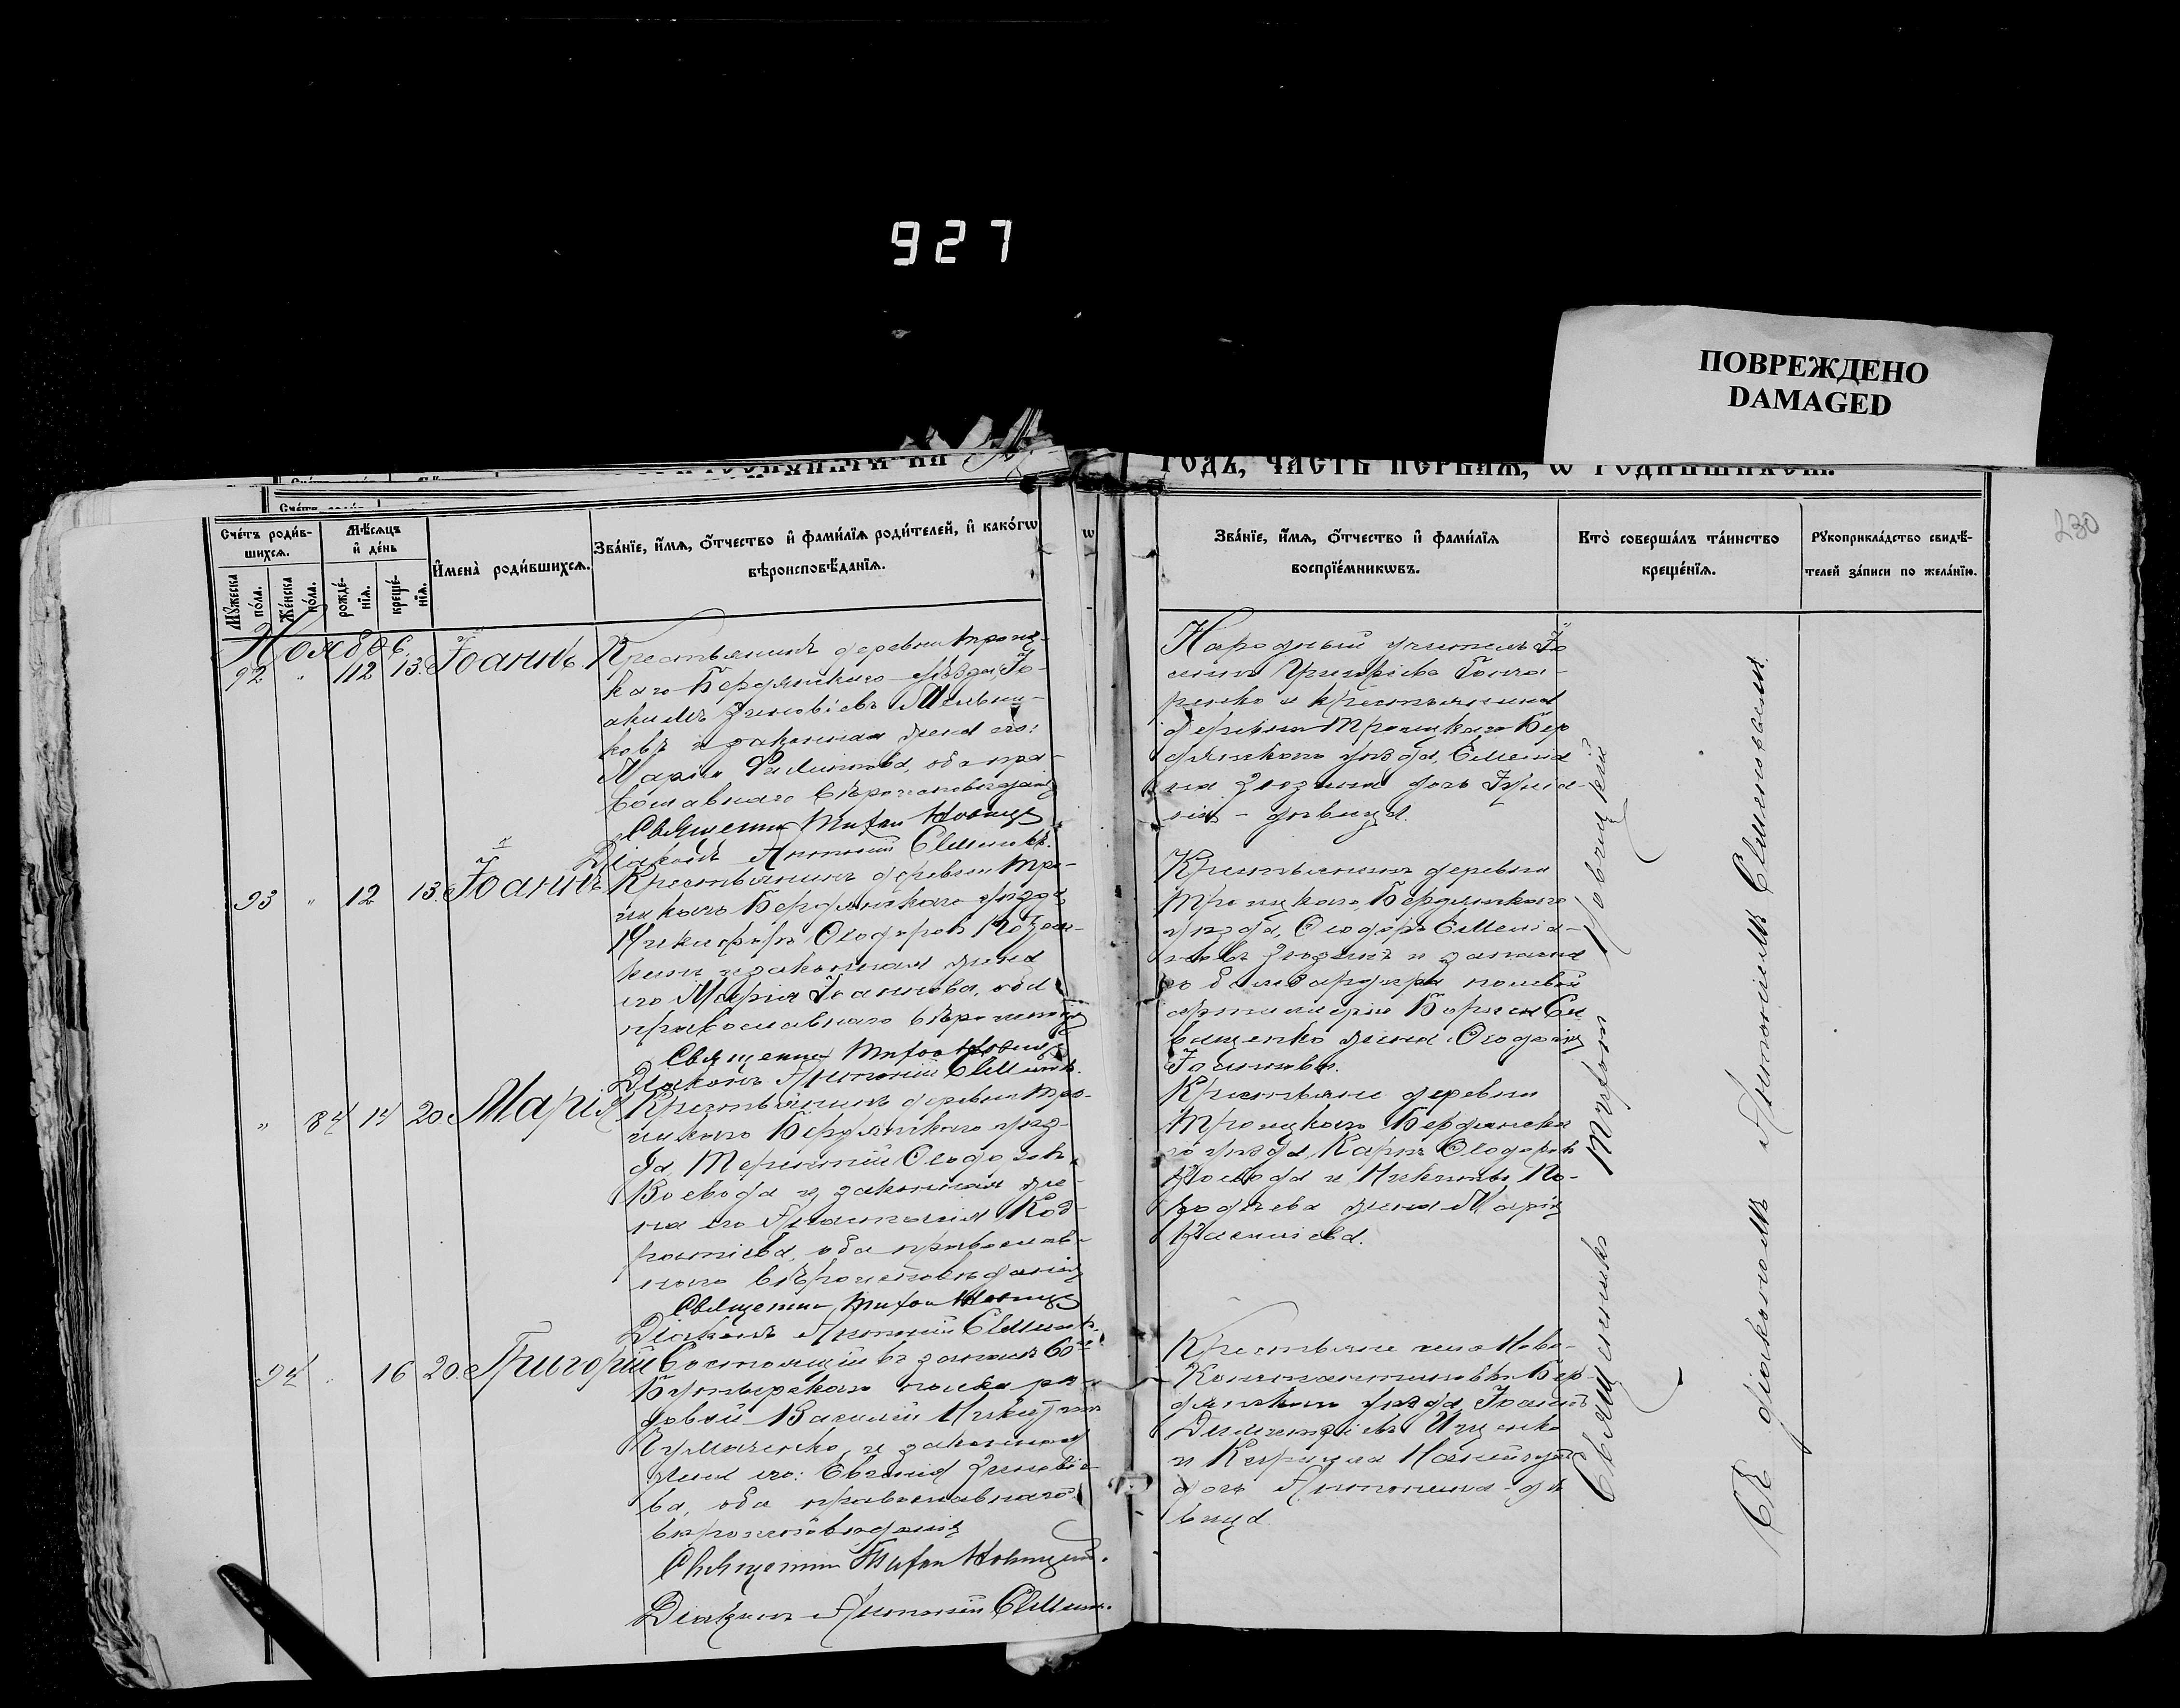 927
ПОВРЕЖДЕНО
DAMAGED
230
годъ, часть первая, ѡ родившихся.
Счетъ родив-
шихся.
Мѣсяцъ
и день
Мужеска
пола.
Женска
пола.
рожде-
нія.
креще-
нія.
Имена родившихся.
Званіе, имя, отчество и фамилія родителей, и какогѡ
вѣроисповѣданія.
Званіе, имя, отчество и фамилія
воспріемникѡвъ.
Кто совершалъ таинство
крещенія.
Рукоприкладство свидѣ-
телей записи по желанію.
Ноябрь
92 " 12 13. Іоаннъ.
Крестьянинъ деревни Троиц-
каго Бердянскаго уѣзда, Іо-
акимъ Зиновіевъ Мельни-
ковъ и законная жена его:
Марія Филиппова, оба пра-
вославнаго вѣроисповѣданія
Священник Тихон Новиц
Діаконъ Антоній Семенов.
Народный учитель Іо
аннъ Григорьевъ Гонча-
ренко и крестьянина
деревни Троицкаго Бер
дянскаго уѣзда, Семена
дочь
дѣвица.
93 " 12 13. Іоаннъ
Крестьянинъ деревни Тро-
ицкаго Бердянскаго уѣзда,
Никифоръ Ѳеодоровъ
и законная жена
его Марія Іоаннова, оба
православнаго вѣроисповѣд
Священник Тихон Новиц
Діаконъ Антоній Семенов.
Крестьянинъ деревни
Троицкаго, Бердянскаго
уѣзда, Ѳеодоръ Семено-
въ и запасна
го бомбардира полевой
артиллеріи Бориса
жена Ѳеодосія
Іоаннова.
" 84 14 20. Марія
Крестьянинъ деревни Тро-
ицкаго Бердянскаго уѣз-
да, Терентій Ѳеодоровъ
Воевода и законная же-
на его Анастасія Код-
ратіева, оба православ-
наго вѣроисповѣданія
Священник Тихон Новиц
Діаконъ Антоній Семенов.
Крестьяне деревни
Троицкаго Бердянска
го уѣзда, Карпъ Ѳеодоровъ
Воевода и Никиты
жена Марія
Васильева.
94 " 16 20. Григорій
Состоящій въ запасѣ 60го
полка ря-
довой Василій Никитинъ
Чумаченко, и законная
жена его: Евгенія Зиновіе-
ва, оба православнаго
вѣроисповѣданія
Священник Тихон Новицкій.
Діаконъ Антоній Семенов.
Крестьяне села Ново-
Константиновки Бер-
дянскаго уѣзда, Іоаннъ
Димитріевъ Ищенко
и Кирилла
дочь Антонина - дѣ
вица
Священникъ Тихонъ Новицкій
Съ діакономъ Антоніемъ Семеновымъ.